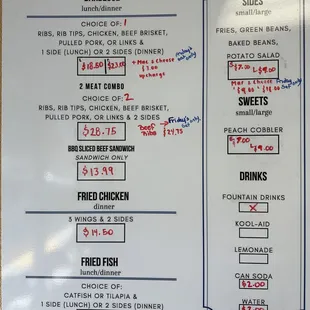 lunch/dinner
CHOICE OF: 1
RIBS, RIB TIPS, CHICKEN, BEEF BRISKET,
PULLED PORK, OR LINKS &
1 SIDE (LUNCH) OR 2 SIDES (DINNER)
$18.50 $23.00
+ Mac & Cheese
$1.00
upcharge
Friday's
Sat only
2 MEAT COMBO
CHOICE OF: 2
RIBS, RIB TIPS, CHICKEN, BEEF BRISKET,
PULLED PORK, OR LINKS & 2 SIDES (DINNER)
$28.75
Beef
Ribs
Friday's
Sat only
$24.75
BBQ SLICED BEEF SANDWICH
SANDWICH ONLY
$13.99
FRIED CHICKEN
dinner
3 WINGS & 2 SIDES
$14.50
FRIED FISH
lunch/dinner
CHOICE OF:
CATFISH OR TILAPIA &
1 SIDE (LUNCH) OR 2 SIDES (DINNER)
SIDES
small/large
FRIES, GREEN BEANS,
BAKED BEANS,
POTATO SALAD
$7.00 L$9.00
Mac & Cheese Friday
Sat only
SWEETS
small/large
PEACH COBBLER
L$9.00
DRINKS
FOUNTAIN DRINKS
X
KOOL-AID
LEMONADE
CAN SODA
$2.00
WATER